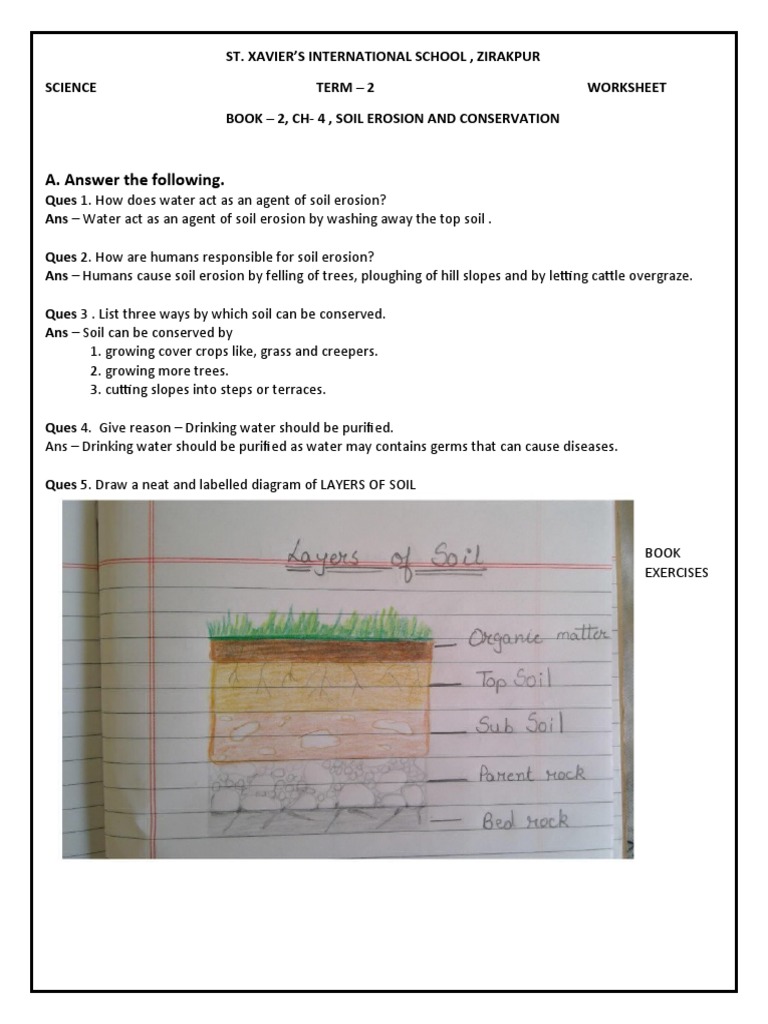 ST. XAVIER'S INTERNATIONAL SCHOOL , ZIRAKPUR
SCIENCE TERM – 2 WORKSHEET
BOOK – 2, CH- 4 , SOIL EROSION AND CONSERVATION
A. Answer the following.
Ques 1. How does water act as an agent of soil erosion?
Ans – Water act as an agent of soil erosion by washing away the top soil .
Ques 2. How are humans responsible for soil erosion?
Ans – Humans cause soil erosion by felling of trees, ploughing of hill slopes and by letting cattle overgraze.
Ques 3 . List three ways by which soil can be conserved.
Ans – Soil can be conserved by
1. growing cover crops like, grass and creepers.
2. growing more trees.
3. cutting slopes into steps or terraces.
Ques 4.  Give reason – Drinking water should be purified.
Ans – Drinking water should be purified as water may contains germs that can cause diseases.
Ques 5. Draw a neat and labelled diagram of LAYERS OF SOIL
Layers of Soil
Organic matter
Top Soil
Sub Soil
Parent rock
Bed rock
BOOK
EXERCISES